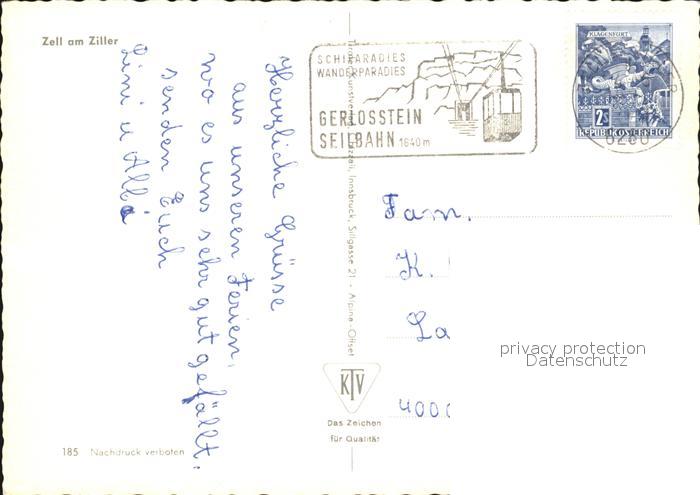 Zell am Ziller
Herzliche Grüsse
aus unseren Ferien,
wo es uns sehr gut gefällt.
senden Euch
Lini u Albi
SCHIPARADIES
WANDERPARADIES
GERLOSSTEIN
SEILBAHN 1640m
KLAGENFURT
2S
REPUBLIK ÖSTERREICH
6280
Innsbruck, Sillgasse 21 - Alpina-Offset
Fam.
K.
La
4000
privacy protection
Datenschutz
KTV
Das Zeichen
für Qualität
185 Nachdruck verboten